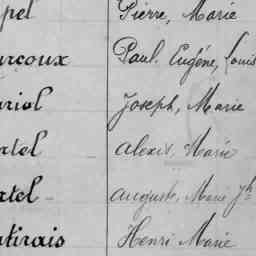 pel Pierre, Marie
urcoux Paul, Eugène, Louis
uriol Joseph, Marie
rtel Alexis, Marie
rtel Auguste, Marie Jh
utirais Henri Marie